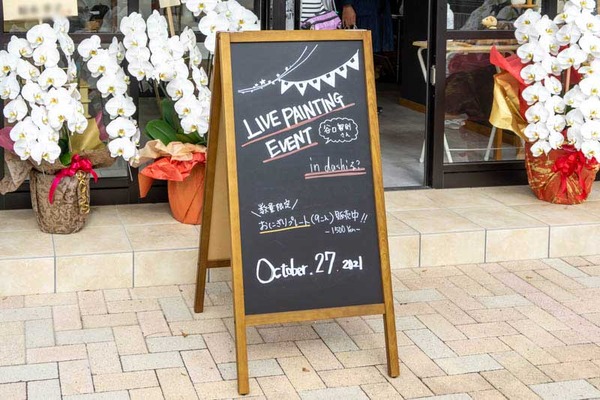 LIVE PAINTING
EVENT
さん
in dashiろ?
＼数量限定／
おにぎりプレート(9こ入)販売中!!
~1500yen~
October. 27. 2021